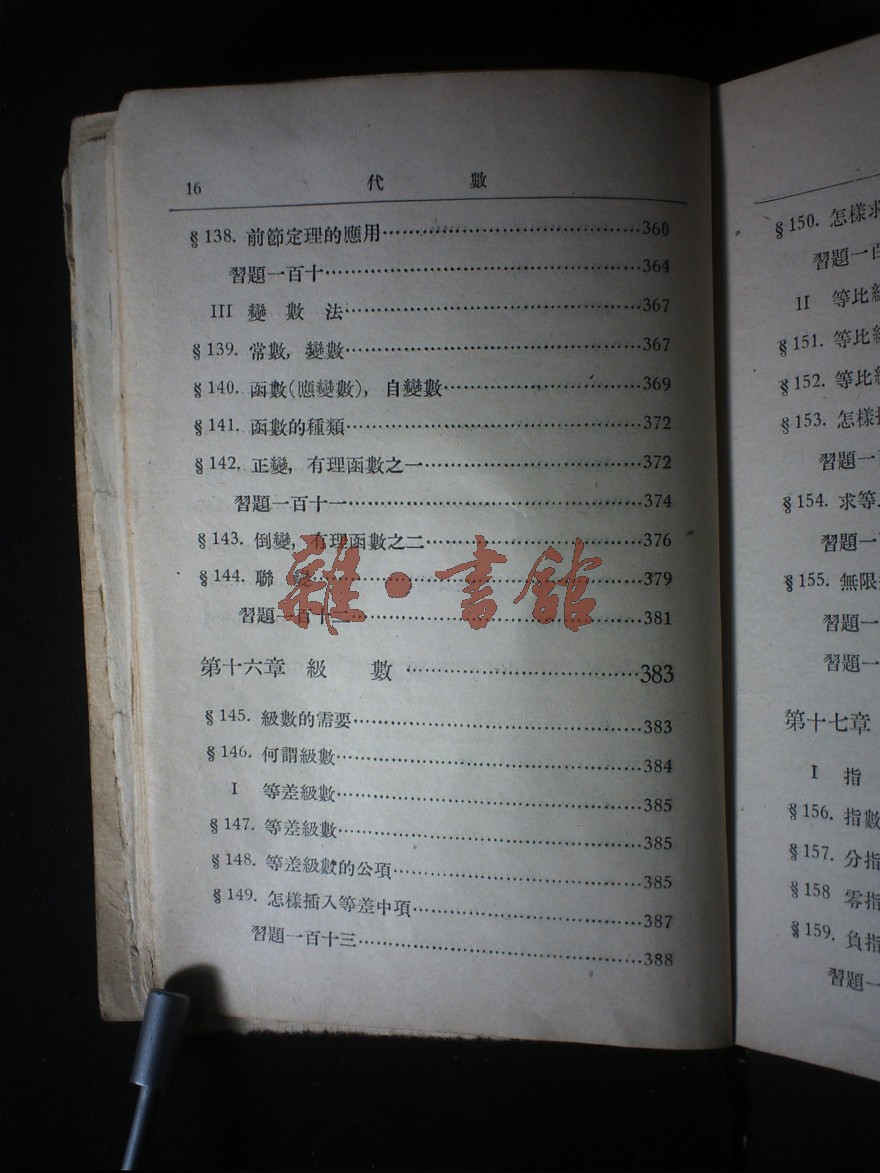 16 代 數
§138. 前節定理的應用……………………360
習題一百十……………………364
III 變 數 法……………………367
§139. 常數, 變數……………………367
§140. 函數(應變數), 自變數……………………369
§141. 函數的種類……………………372
§142. 正變, 有理函數之一……………………372
習題一百十一……………………374
§143. 倒變, 有理函數之二……………………376
§144. 聯 變……………………379
習題一百十二……………………381
第十六章 級 數……………………383
§145. 級數的需要……………………383
§146. 何謂級數……………………384
I 等差級數……………………385
§147. 等差級數……………………385
§148. 等差級數的公項……………………385
§149. 怎樣插入等差中項……………………387
習題一百十三……………………388
雜·書館
§150. 怎樣求
習題一百
II 等比級
§151. 等比級
§152. 等比級
§153. 怎樣插
習題一百
§154. 求等
習題一百
§155. 無限
習題一
習題一
第十七章
I 指
§156. 指數
§157. 分指
§158 零指
§159. 負指
習題一